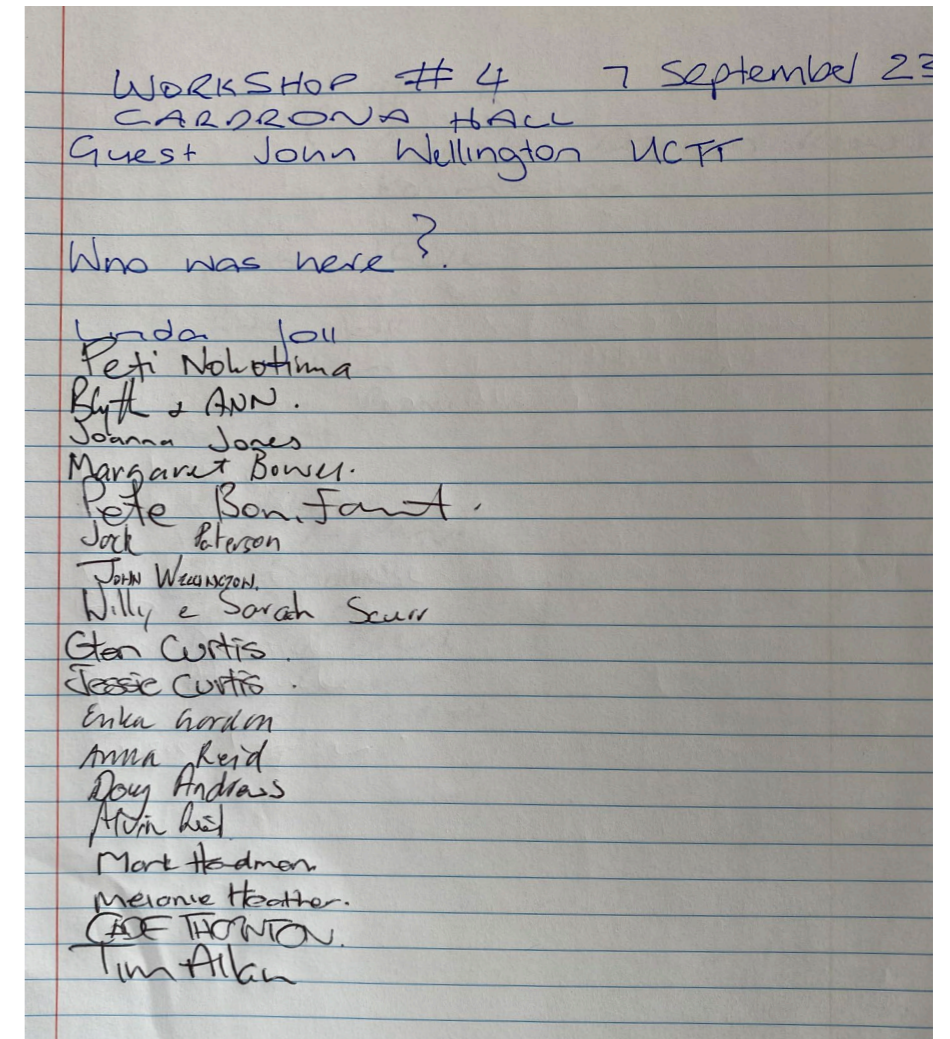 WORKSHOP # 4 7 September 23
CARDRONA HALL
Guest John Wellington UCTT
Who was here?
Lynda Joll
Peti Nohotima
Blyth & ANN.
Joanna Jones
Margaret Bower.
Pete Bonifant.
Jock Paterson
JOHN WELLINGTON.
Willy & Sarah Scurr
Glen Curtis.
Jessie Curtis.
Erika Gordon
Anna Reid
Doug Andrews
Alvin Reid
Mark Hedman
Melanie Heather.
CADE THORNTON.
Tim Allan